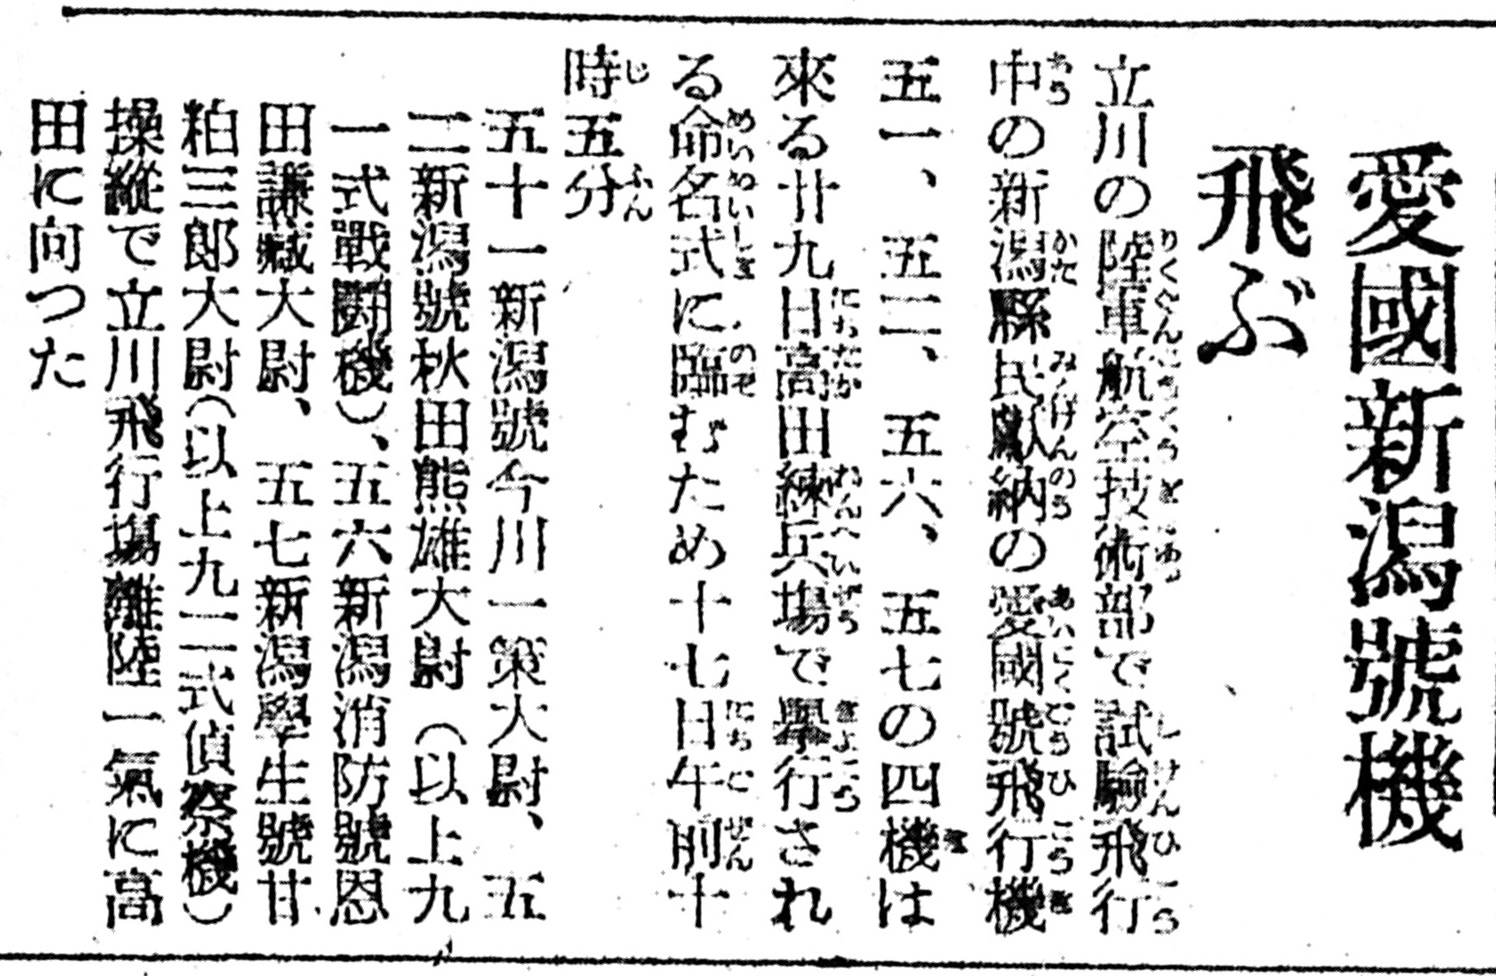 愛國新潟號機
飛ぶ
立川の陸軍航空技術部で試驗飛行
中の新潟縣民獻納の愛國號飛行機
五一、五二、五六、五七の四機は
來る廿九日高田練兵場で擧行され
る命名式に臨むため十七日午前十
時五分
五十一新潟號今川一策大尉、五
二新潟號秋田熊雄大尉（以上九
一式戰鬪機）、五六新潟消防號恩
田謙藏大尉、五七新潟學生號甘
粕三郎大尉（以上九二式偵察機）
操縱で立川飛行場離陸一氣に高
田に向つた